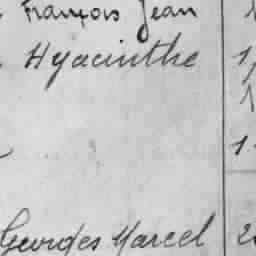 François Jean
Hyacinthe
Georges Marcel